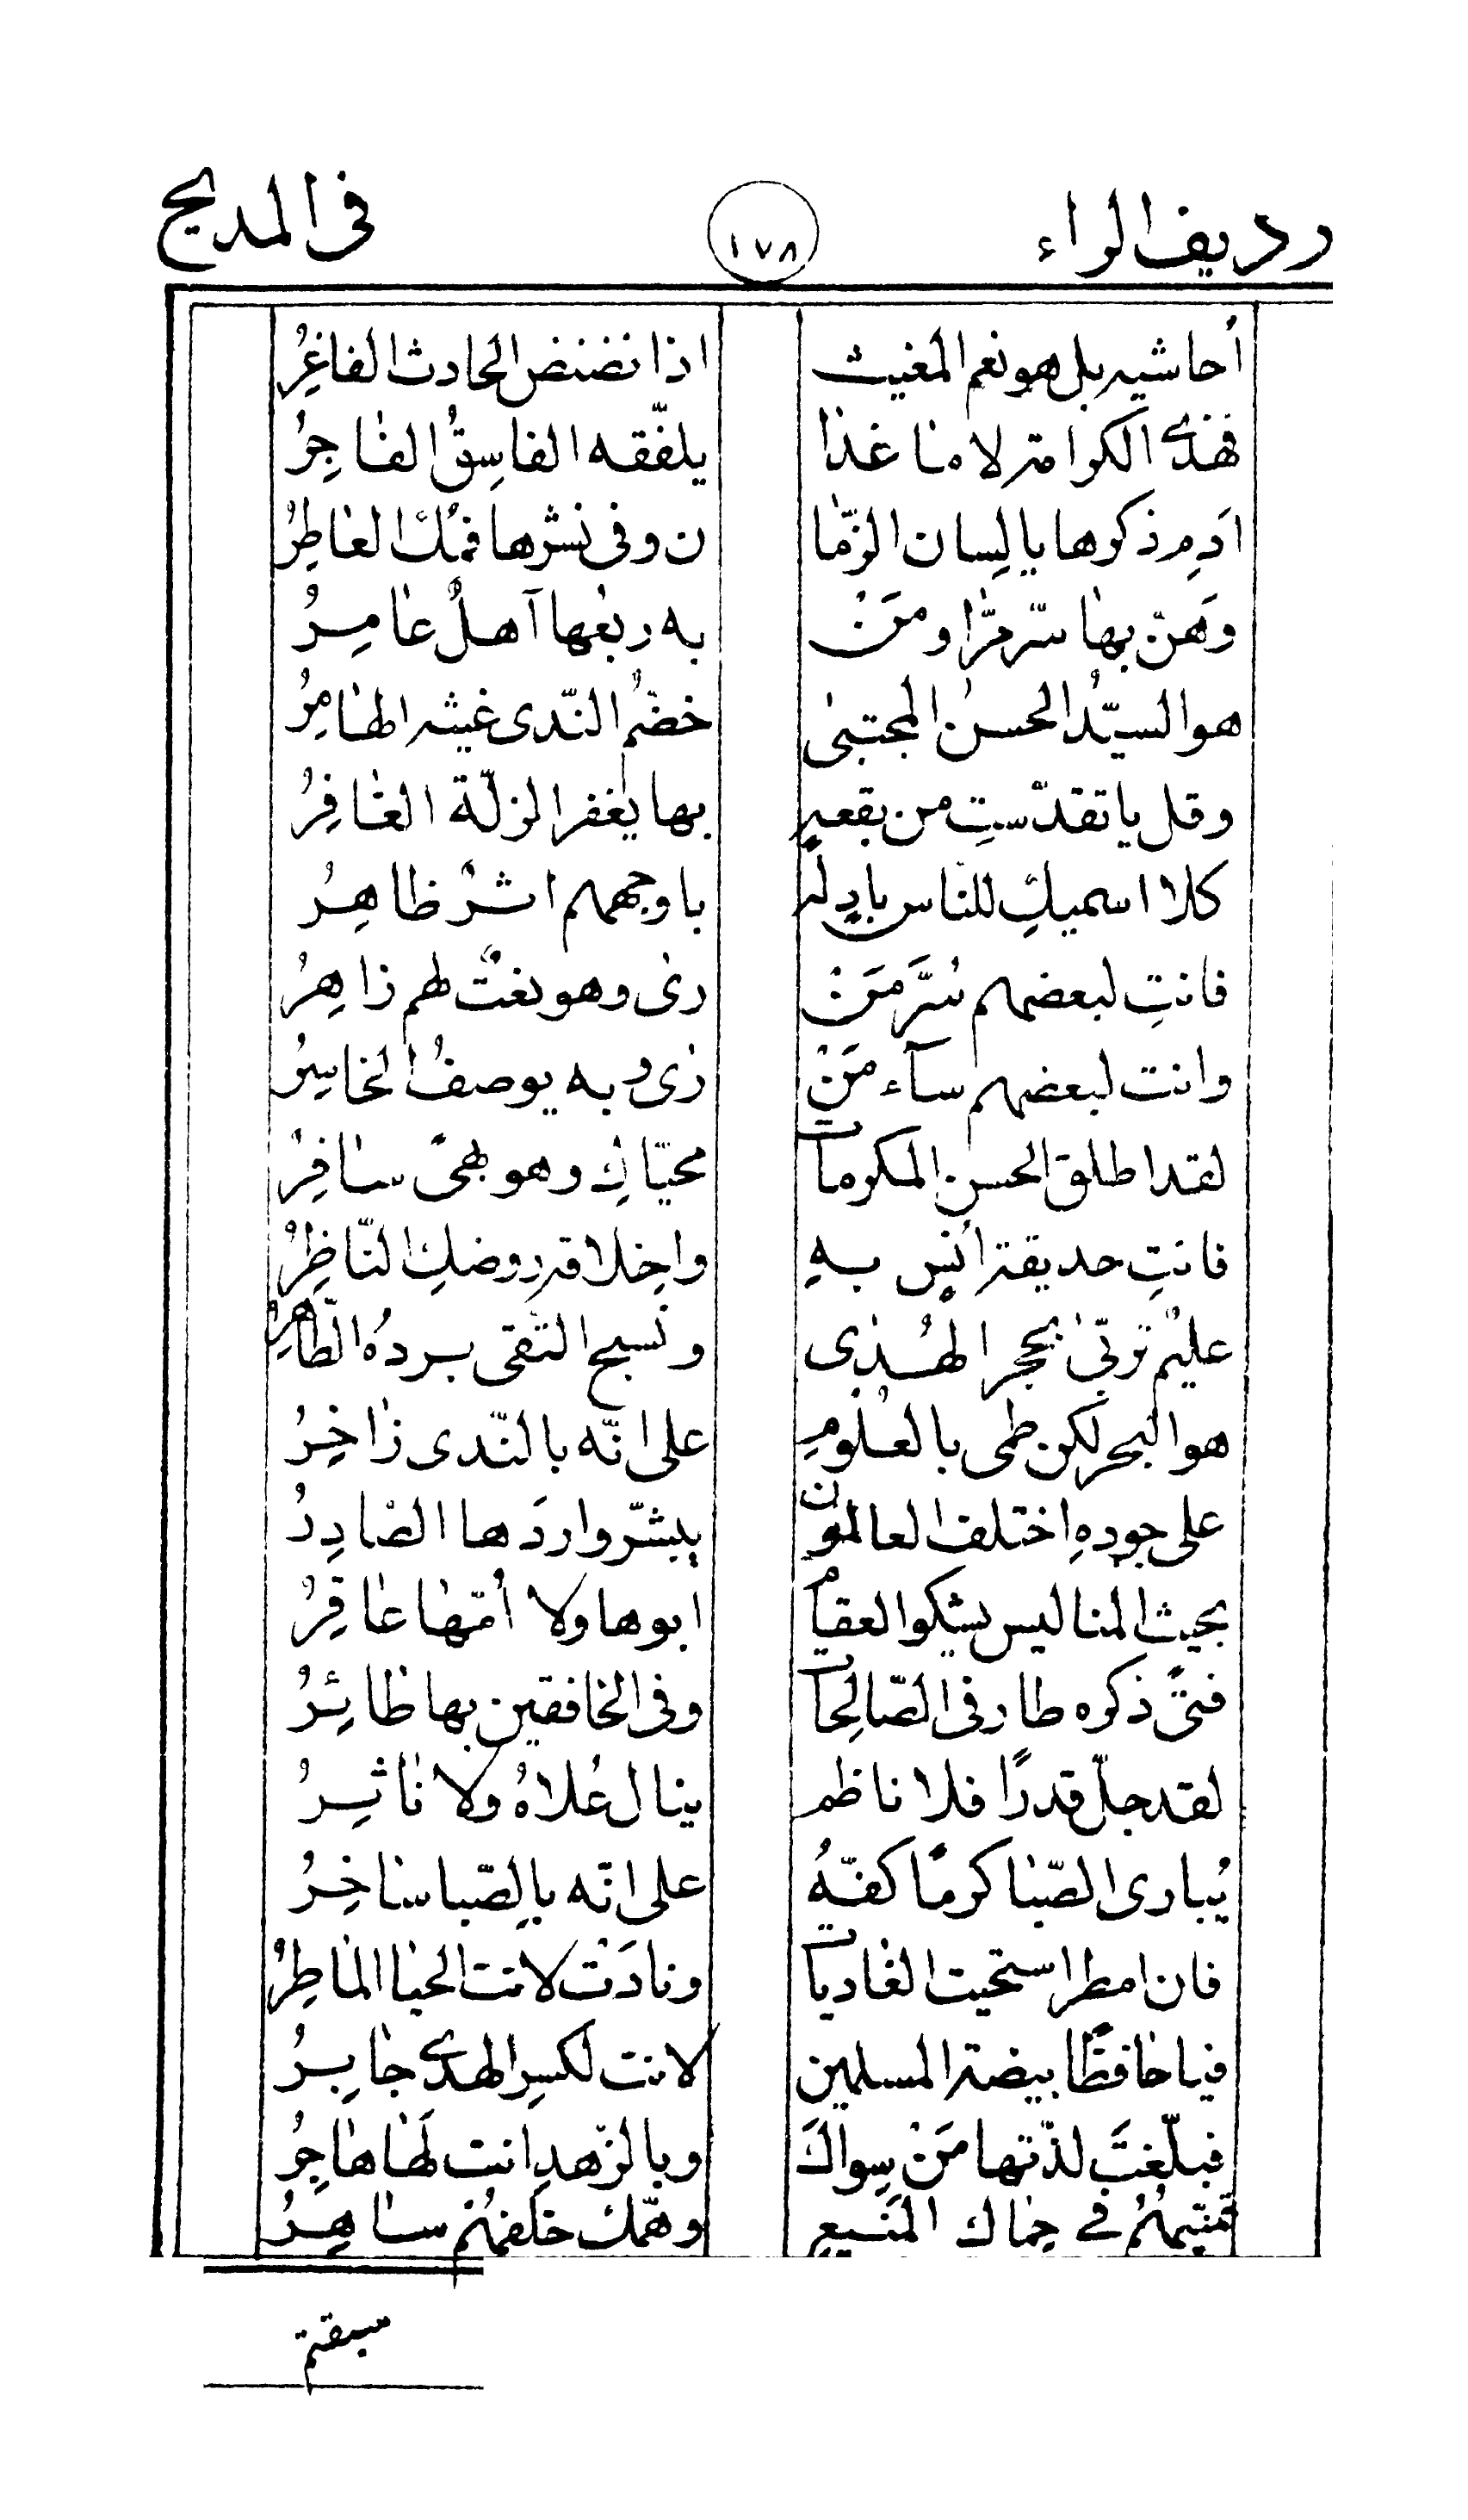 رديف الراء ١٧٨ فى المديح
أحاشيه بل هو نعم المغيث اذا نضنض الحادث الفاغِرُ
فهٰذى الكرامة لا ما غذا يلفّقه الفاسِقُ الفاجِرُ
ادِم ذكرها يا لِسان الزّمٰا ن وفى نشرها فمُك العٰاطِرُ
وَهَنّ بهٰا سُرّ مَرّا ومَنْ به ربعُها آهلٌ عٰامِرُ
هو السيّدُ الحسنُ المجتبىٰ خضمُّ النّدى غيثه الهٰامِرُ
وقل يا تقدّستِ من بقعةٍ بها يَغفر الزلّة الغٰافِرُ
كلا اسميكِ للنّاس بادٍ له باوجههم اثرٌ ظاهِرُ
فانتِ لبعضهم سُرَّ مَنْ رىٰ وهو نعتٌ لهم زاهِرُ
وانت لبعضهم سآء مَنْ رٰى وبه يوصفُ الخاسِرُ
لقد اطلق الحسن المكرمات محيّاكِ وهو بهىً سٰافِرُ
فانتِ حديقة اُنسٍ بهِ واخلاقه روضكِ النّاظِرُ
عليمٌ تربّىٰ بحجر الهُدٰى ونسج التّقى بردهُ الطّاهِرُ
هو البحر لكن طمى بالعُلومِ على انّه بالنّدى زٰاخِرُ
على جودهِ اختلف العالمون يبشّر واردَها الصّٰادِرُ
بحيث المنا ليس يشكو العقامُ ابوها ولا اُمّهٰا عٰاقِرُ
فتىً ذكره طار فى الصّالِحات وفى الخافقين بها طٰائِرُ
لقد جلّ قدرًا فلا ناظم ينال عُلاهُ ولا نٰاثِرُ
يُبارى الصّبٰا كرمًا كفّهُ على انّه بالصّبا سٰاخِرُ
فان امطر استحيت الغٰاديات ونادَتْ لانت الحيٰا المٰاطِرُ
فيا حٰافظًا بيضة المسلمين لانت لكسرِ الهدىٰ جٰابِرُ
فبلّغتَ لذّتها مَنْ سِواكَ وبالزّهدِ انت لَهٰا هٰاجِرُ
تمنّيهمُ فى حِمٰاك المَنيعِ وهمّك خلفهُمُ سٰاهِرُ